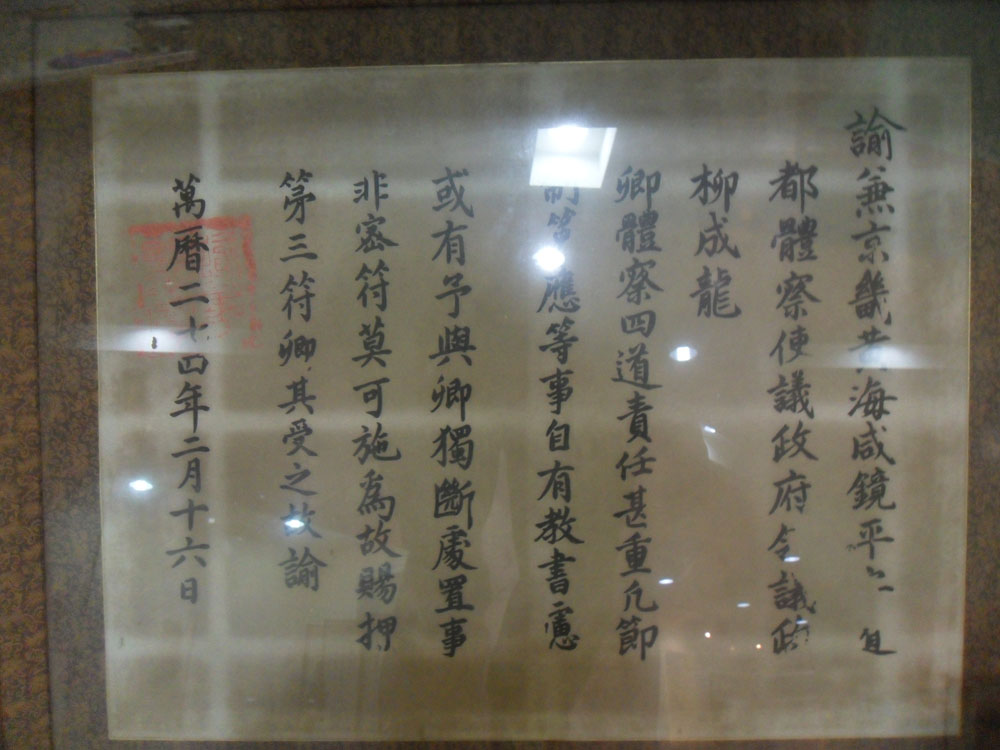 諭兼京畿黃海咸鏡平安 道
都體察使議政府令議政
柳成龍
卿體察四道責任甚重凡節
制策應等事自有教書慮
或有予與卿獨斷處置事
非密符莫可施爲故賜押
第三符卿其受之故諭
萬曆二十四年二月十六日